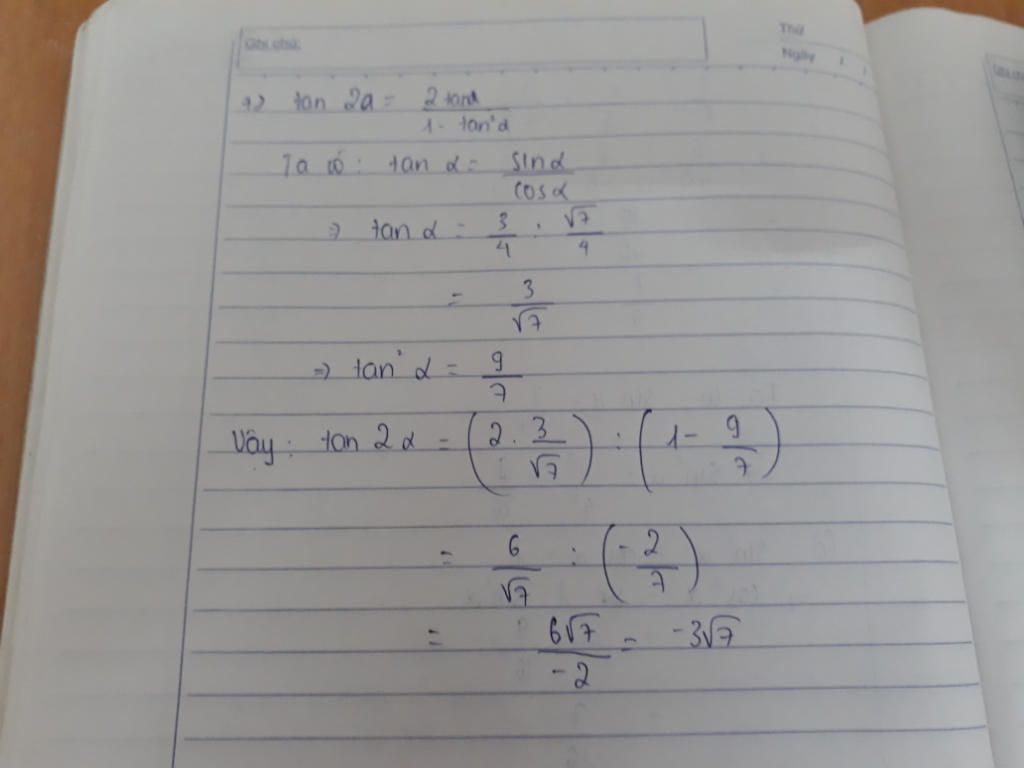 Ghi chú:
Thứ
Ngày / /
+) tan 2a = 2 tanα / 1 - tan²α
Ta có: tan α = sinα / cosα
⇒ tan α = 3/4 : √7/4
= 3/√7
⇒ tan² α = 9/7
Vậy: tan 2α = (2 . 3/√7) : (1 - 9/7)
= 6/√7 : (-2/7)
= 6√7/-2 = -3√7